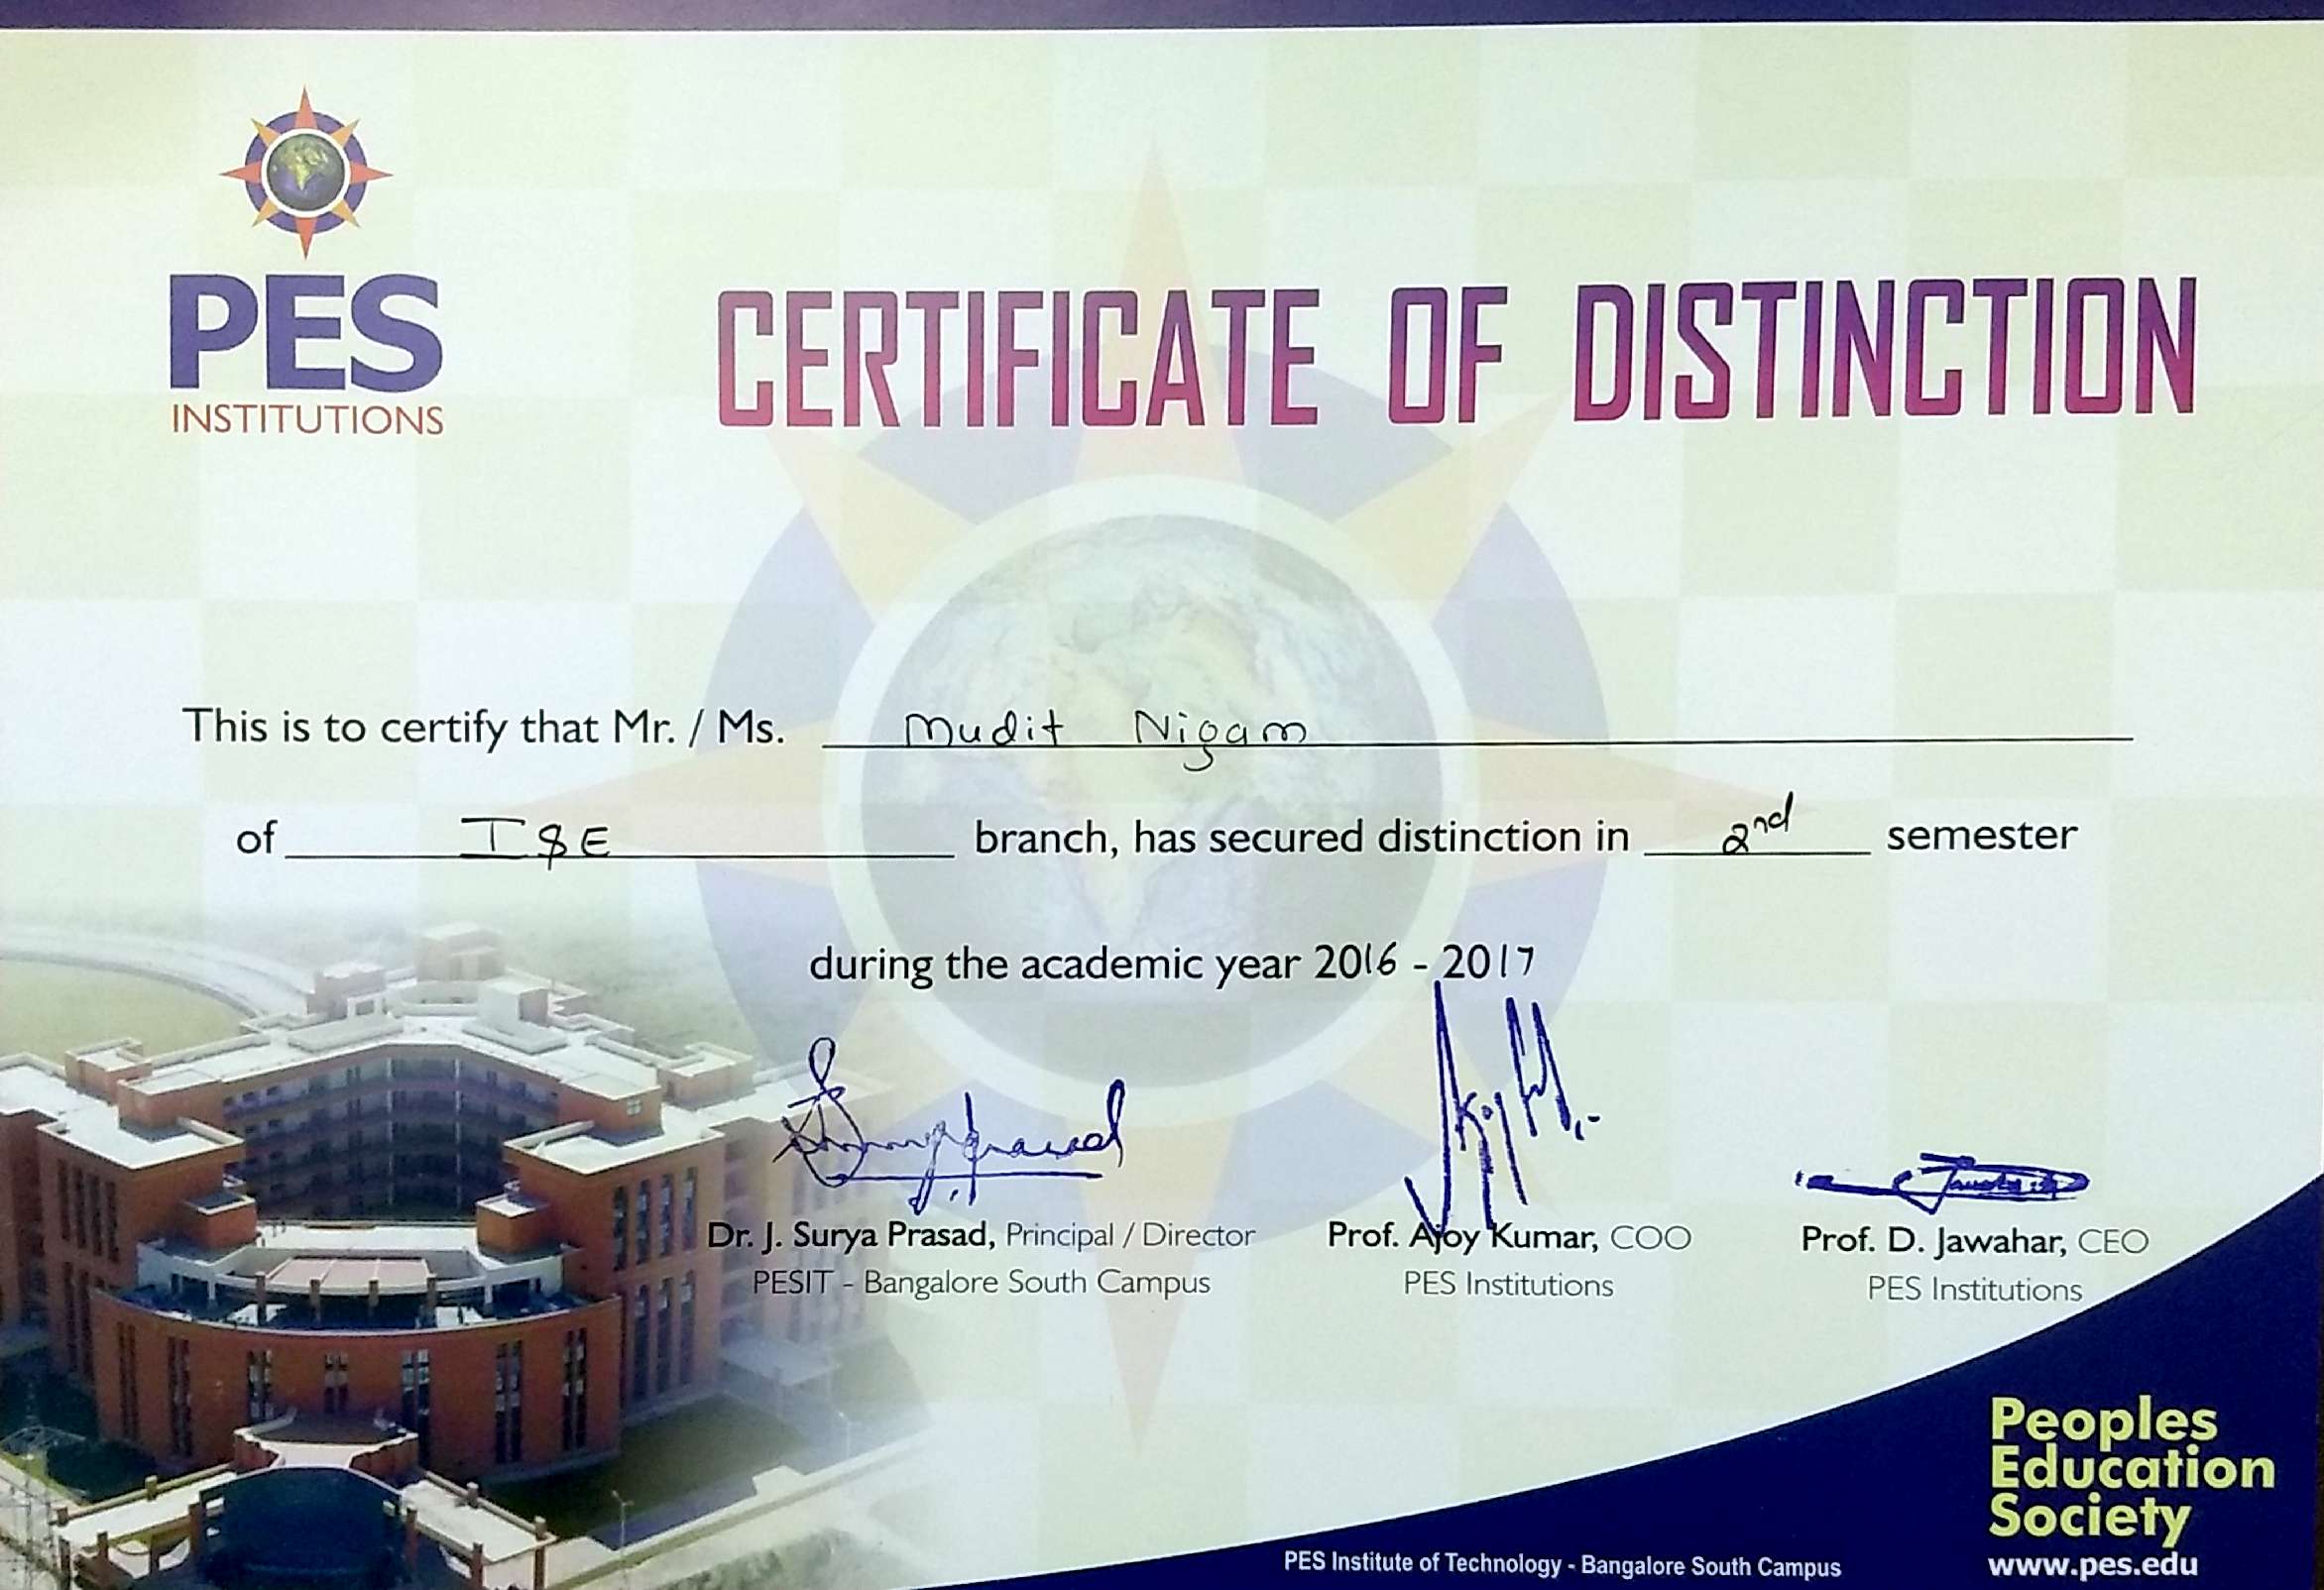 PES
INSTITUTIONS
CERTIFICATE OF DISTINCTION
This is to certify that Mr. / Ms. Mudit Nigam
of ISE branch, has secured distinction in 2nd semester
during the academic year 2016 - 2017
Dr. J. Surya Prasad, Principal / Director
PESIT - Bangalore South Campus
Prof. Ajoy Kumar, COO
PES Institutions
Prof. D. Jawahar, CEO
PES Institutions
Peoples
Education
Society
www.pes.edu
PES Institute of Technology - Bangalore South Campus